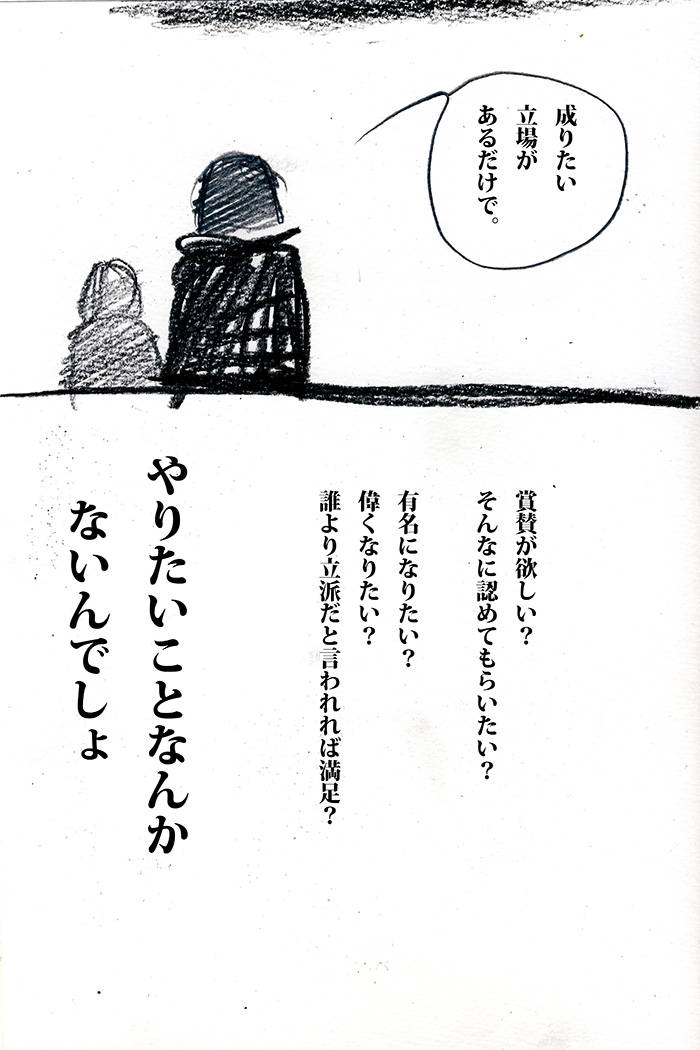 成りたい
立場が
あるだけで。
賞賛が欲しい？
そんなに認めてもらいたい？
有名になりたい？
偉くなりたい？
誰より立派だと言われれば満足？
やりたいことなんか
ないんでしょ